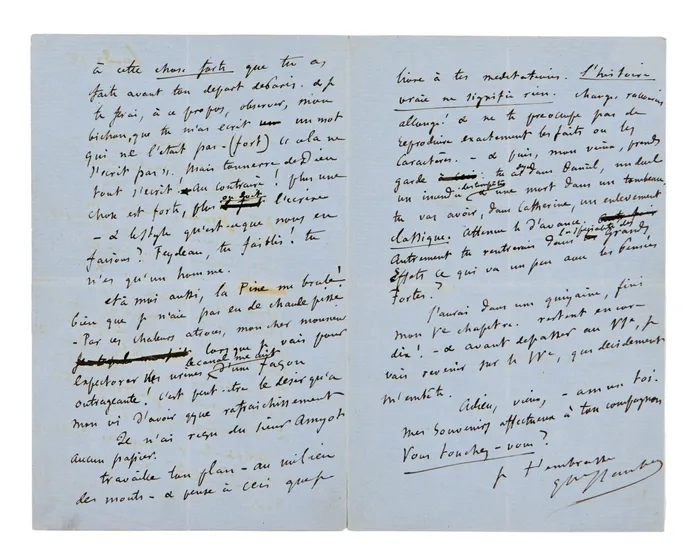 à cette chose forte que tu as
faite avant ton départ de Paris. & je
te ferai, à ce propos, observer, mon
bichon, que tu m'as écrit un mot
qui ne l'était pas - (fort) « cela ne
s'écrit pas ». Mais tonnerre de Dieu
tout s'écrit. Au contraire! plus une
chose est forte, plus on doit l'écrire
- & le style qu'est-ce que nous en
faisons? Feydeau, tu faiblis! tu
n'es qu'un homme.
et à moi aussi, la Pine me brule!
bien que je n'aie pas eu de chaude pisse
- Par ces chaleurs atroces, mon cher monsieur
lorsque je vais pour
expectorer mes urines le canal me cuit d'une façon
outrageante! C'est peut-être le désir qu'a
mon vi d'avoir q que rafraichissement
Je n'ai reçu du sieur Amyot
aucun papier.
travaille ton plan - au milieu
des monts - & pense à ceci que je
livre à tes meditations. L'histoire
vraie ne signifie rien. change raccourcis
allonge! & ne te preocupe pas de
reproduire exactement les faits ou les
caractères. - & puis, mon vieux, prends
garde tu as dans Daniel, un duel
un incendie & une mort dans un tombeau
tu vas avoir, dans Catherine, un enlevement
classique. Attenue le d'avance.
Autrement tu rentrerais dans la spécialité des Grands
Effets ce qui va un peu aux les Pensées
Fortes?
J'aurai dans une quinzaine, fini
mon Ve chapitre. restent encore
dix! - & avant de passer au VIe, je
vais revenir sur le IVe, qui décidement
m'embête.
Adieu, vieux, - amuse toi.
Mes souvenirs affectueux à ton compagnon
Vous touchez-vous?
je t'embrasse
Gve Flaubert